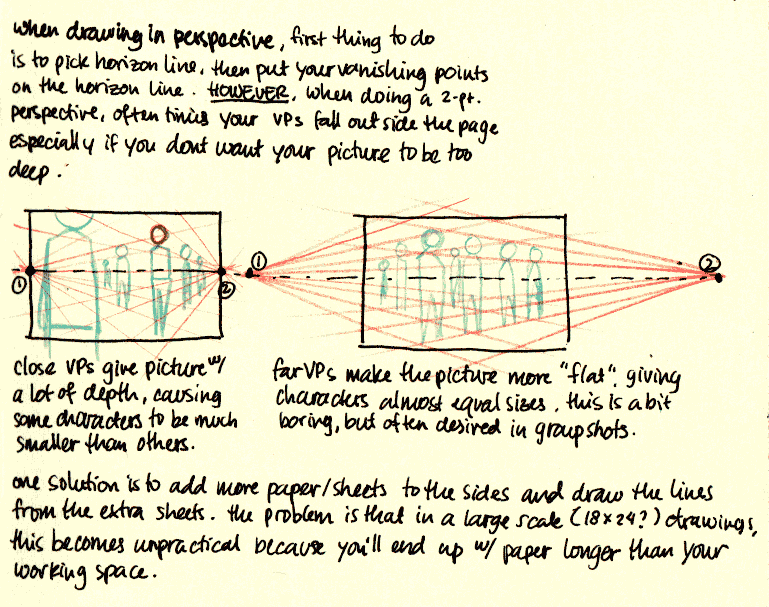 when drawing in perspective, first thing to do
is to pick horizon line, then put your vanishing points
on the horizon line. HOWEVER, when doing a 2-pt.
perspective, often times your VPs fall outside the page
especially if you dont want your picture to be too
deep.
① ② ① ②
close VPs give picture w/
a lot of depth, causing
some characters to be much
smaller than others.
far VPs make the picture more "flat", giving
characters almost equal sizes. this is a bit
boring, but often desired in group shots.
one solution is to add more paper/sheets to the sides and draw the lines
from the extra sheets. the problem is that in a large scale (18x24?) drawings,
this becomes unpractical because you'll end up w/ paper longer than your
working space.